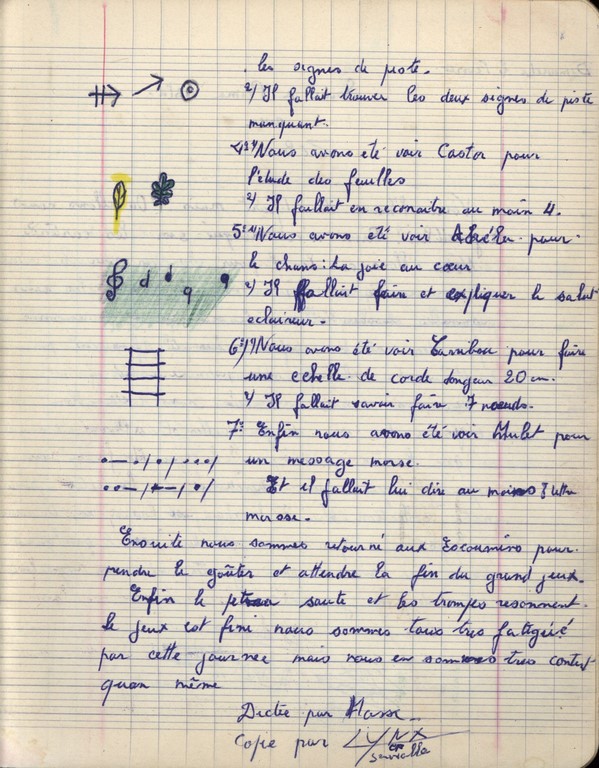 . les signes de piste.
2/ Il fallait trouver les deux signes de piste
manquant.
4: 1/ Nous avons été voir Castor pour
l'étude des feuilles
2/ Il faillait en reconaitre au moin 4.
5: 1/ Nous avons été voir pour
le chans: La joie au cœur
2/ Il fallait faire et expliquer le salut
eclaireur.
6: 1/ Nous avons été voir Carribou pour faire
une echelle de corde longeur 20 cm.
2/ Il fallait savoir faire 7 noeuds.
7: Enfin nous avons été voir Mulet pour
un message morse.
Et il fallait lui dire au moins lettre
morse.
Ensuite nous sommes retourné aux Escoumins pour
prendre le goûter et attendre la fin du grand jeux.
Enfin le saute et les trompes resonnent.
le jeux est fini nous sommes tous tres fatigué
par cette journée mais nous en sommes tres content
quan même
Dictée par
Copie par LYNX